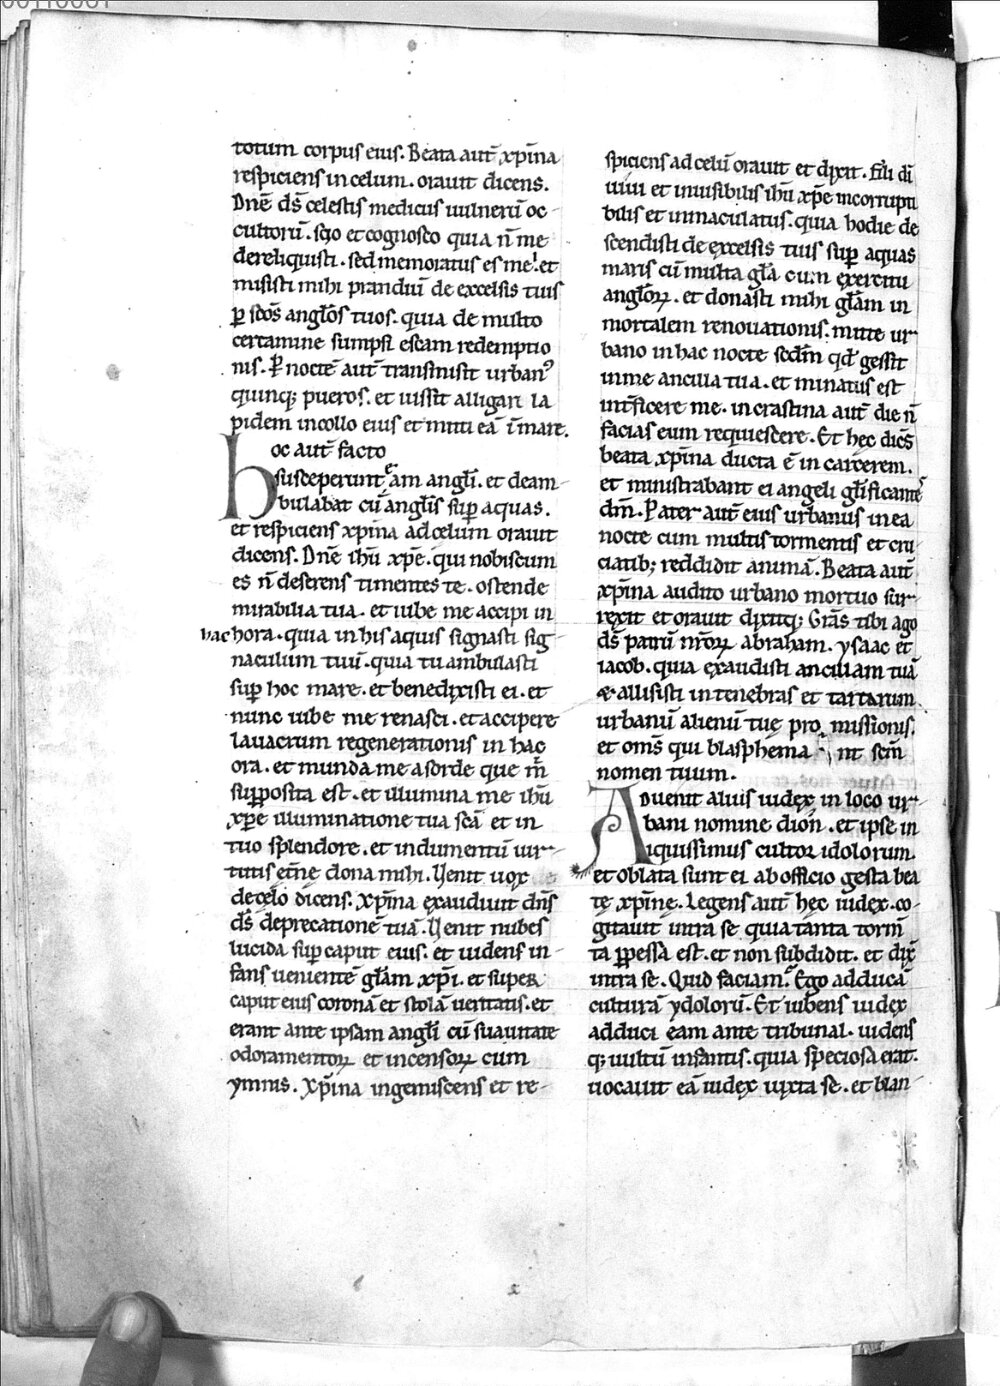 totum corpus eius. Beata aut̄ xp̄ina
respiciens in celum. orauit dicens.
Dn̄e d̄s celestis medicus uulnerū oc-
cultorū. scio et cognosco quia n̄ me
dereliquisti. sed memoratus es me! et
misisti mihi prandiū de excelsis tuis
ꝑ sc̄os angl̄os tuos. quia de multo
certamine sumpsi escam redemptio
nis. P̄ noctē aut̄ transmisit urbanꝰ
quinq; pueros. et iussit alligari la
pidem in collo eius et mitti eā ī mare.
hoc aut̄ facto
susceperunt eam angl̄i. et deam-
bulabat cū angl̄is sup̄ aquas.
et respiciens xp̄ina ad celum orauit
dicens. Dn̄e ih̄u xp̄e. qui nobiscum
es n̄ deserens timentes te. ostende
mirabilia tua. et iube me accipi in
hac hora. quia in his aquis signasti sig-
naculum tuū. quia tu ambulasti
sup̄ hoc mare. et benedixisti ei. et
nunc iube me renasci. et accipere
lauacrum regenerationis in hac
ora. et munda me a sorde que m̄
supposita est. et illumina me ih̄u
xp̄e illuminatione tua sc̄a et in
tuo splendore. et indumentū uir-
tutis et̄ne dona mihi. Uenit uox
de celo dicens. xp̄ina exaudiuit dn̄s
d̄s deprecationē tuā. Uenit nubes
lucida sup̄ caput eius. et uidens in-
fans uenientē gl̄am xp̄i. et super
caput eius coronā et stolā ueritatis. et
erant ante ipsam angl̄i cū suauitate
odoramentoꝝ et incensoꝝ cum
ymnis. Xp̄ina ingemiscens et re-
spiciens ad celū orauit et dixit. Fili dī
uiui et inuisibilis ih̄u xp̄e incorrupti
bilis et inmaculatus. quia hodie de
scendisti de excelsis tuis sup̄ aquas
maris cū multa gl̄a cum exercitu
angl̄oꝝ. et donasti mihi gl̄am in
mortalem renouationis. mitte ur-
bano in hac nocte sed̄m qd̄ gessit
in me ancilla tua. et minatus est
int̄ficere me. in crastina aut̄ die n̄
facias eum requiescere. Et hec dic̄s
beata xp̄ina ducta ē in carcerem.
et ministrabant ei angeli gl̄ificantē
dm̄. Pater aut̄ eius urbanus in ea
nocte cum multis tormentis et cru
ciatib; reddidit animā. Beata aut̄
xp̄ina audito urbano mortuo sur-
rexit et orauit dixitq; Gr̄as tibi ago
d̄s patrū nr̄oꝝ abraham. ysaac et
iacob. quia exaudisti ancillam tuā
& allisisti in tenebras et tartarum
urbanū alienū tuę promissionis.
et om̄s qui blasphema nt sc̄m
nomen tuum.
Aduenit alius iudex in loco ur-
bani nomine dion̄. et ipse in
iquissimus cultor idolorum.
et oblata sunt ei ab officio gesta bea
tę xp̄inę. Legens aut̄ hęc iudex. co-
gitauit intra se quia tanta torm̄
ta ꝑpessa est. et non subdidit. et dix̄
intra se. Quid faciam? Ego adducā
culturā ydolorū. Et iubens iudex
adduci eam ante tribunal. uidens
q; uultū infantis. quia speciosa erat.
uocauit eā iudex iuxta se. et blan-